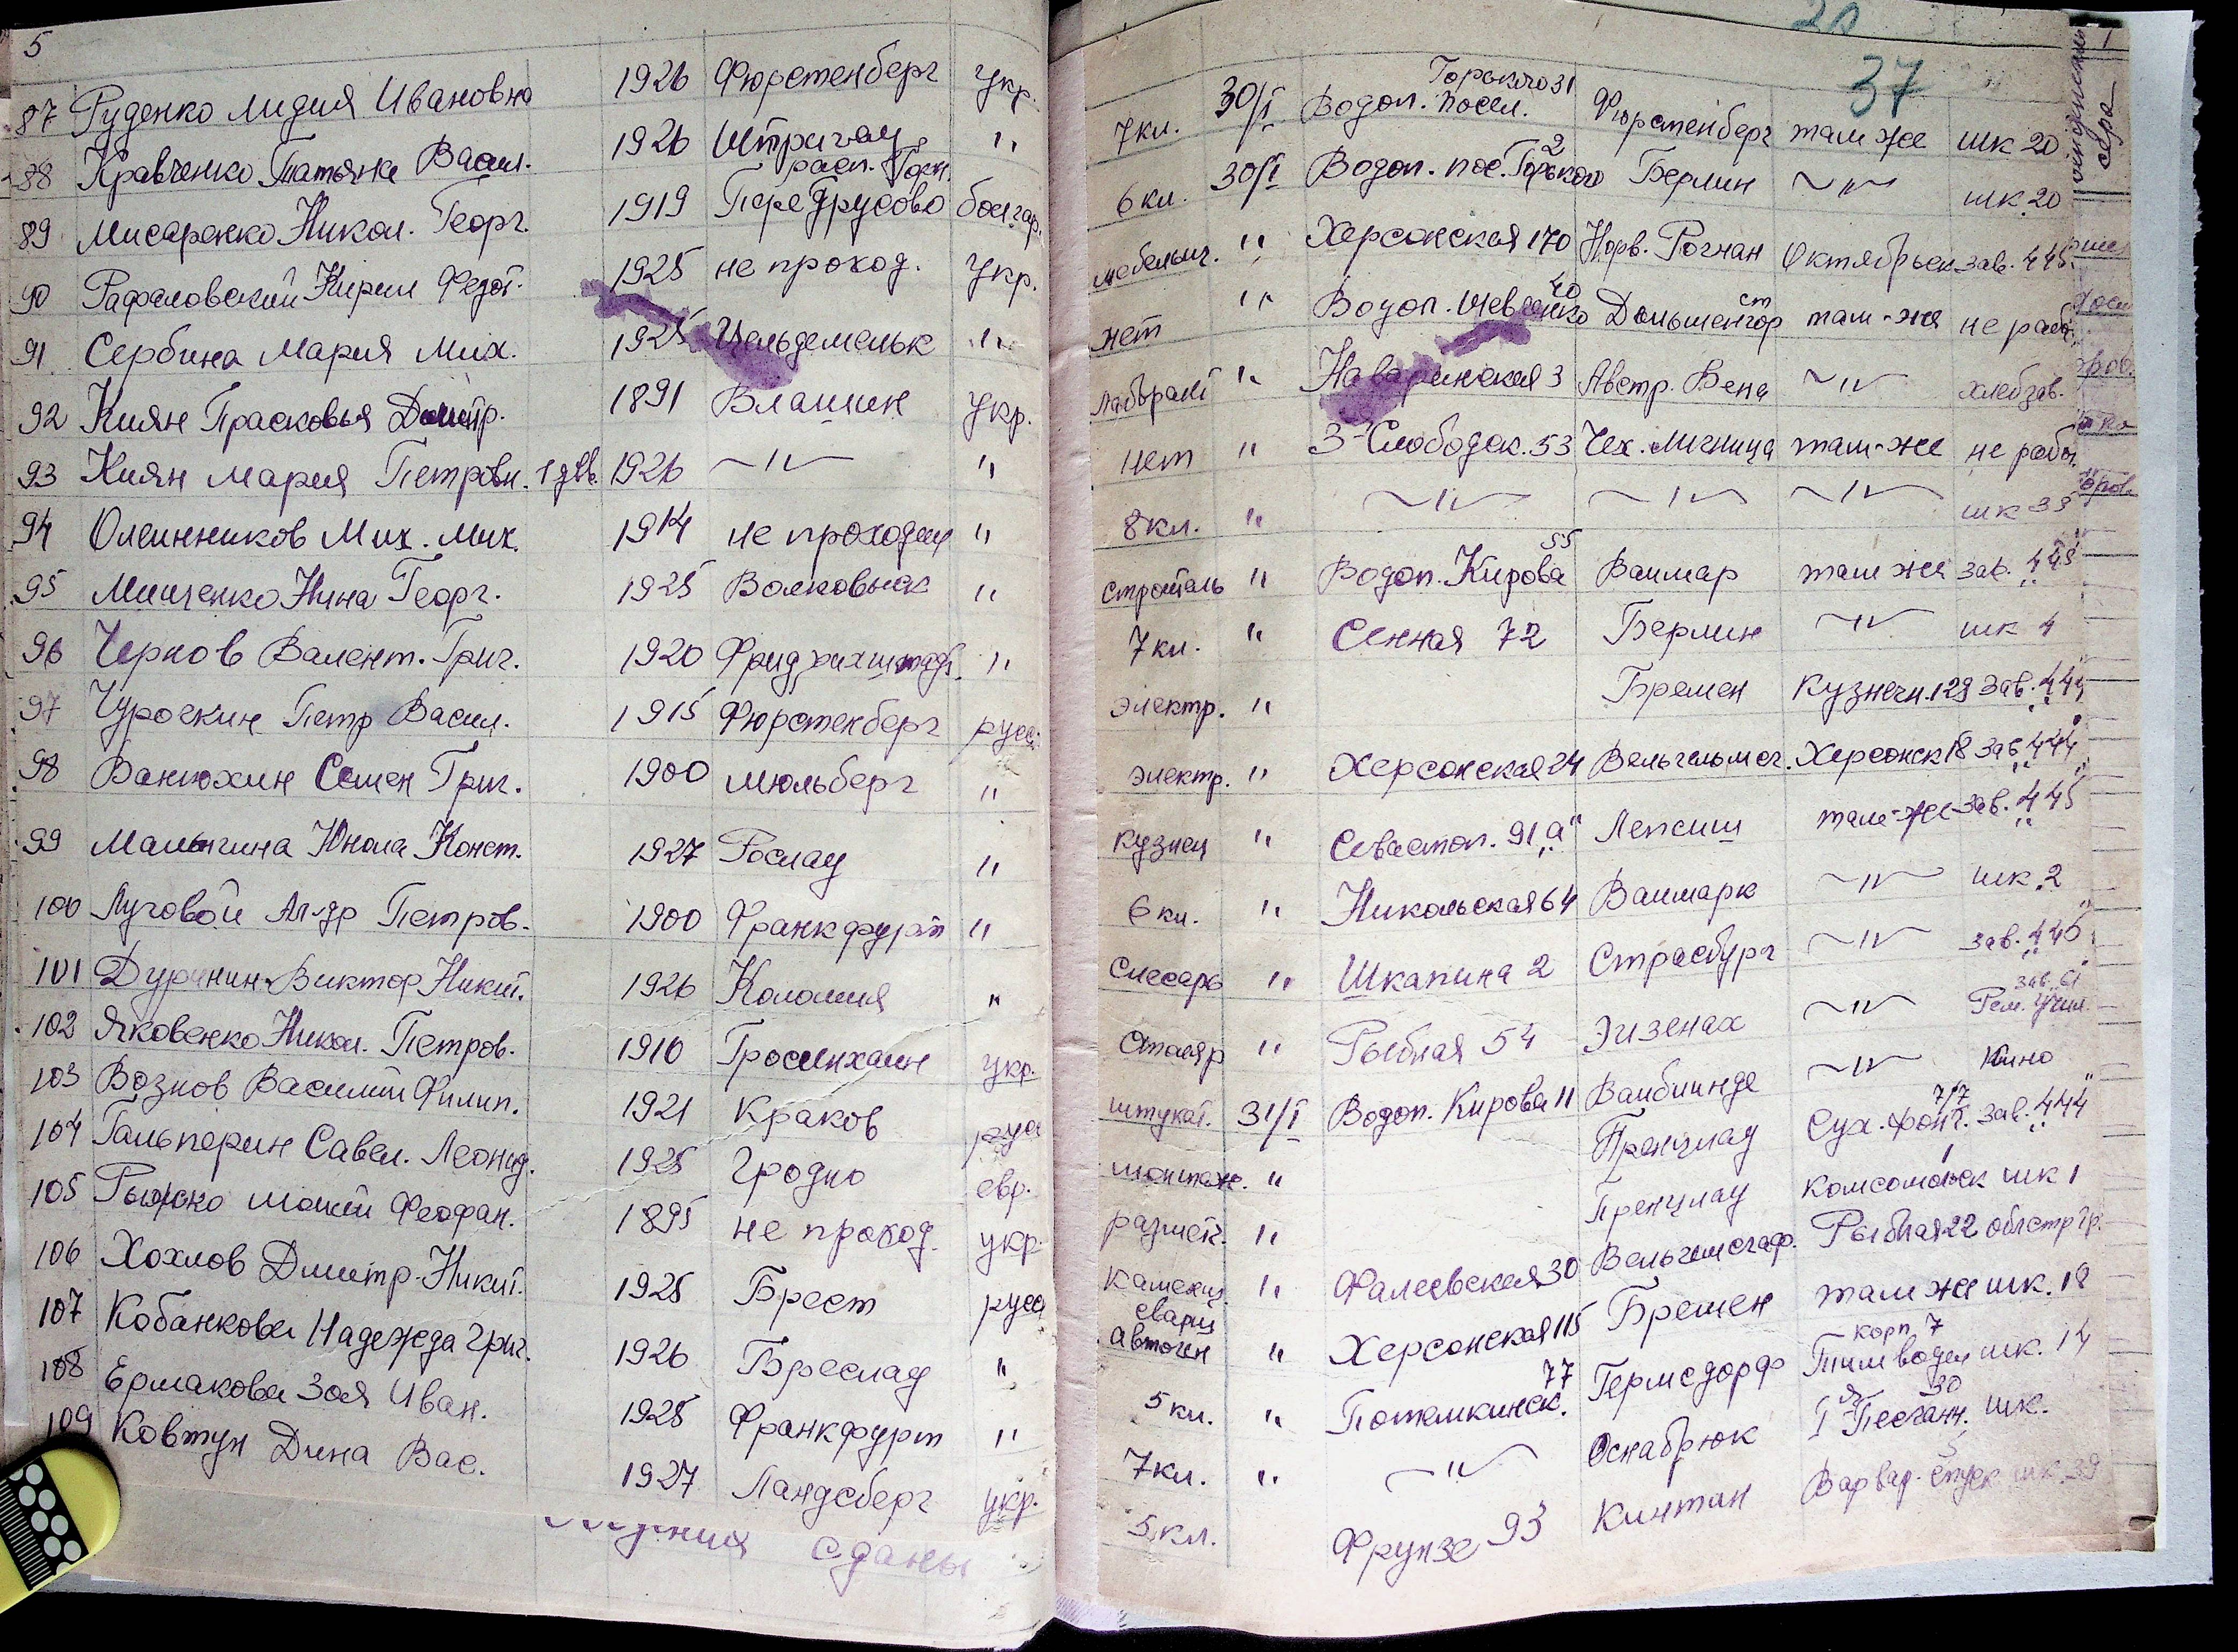 5
87 Руденко Лидия Ивановна 1926 Фюрстенберг укр.
88 Кравченко Татьяна Васил. 1926 Штригау "
расп. Горн.
89 Мисаренко Никол. Георг. 1919 Пере Друсово болгар.
90 Рафаловский Кирил Федот. 1925 не проход. укр.
91 Сербина Мария Мих. 1925 Цельдемельк "
92 Киян Прасковья Дмитр. 1891 Влашин укр.
93 Киян Мария Петровн. 1926 —"— "
94 Олейников Мих. Мих. 1914 не проходил "
95 Мищенко Нина Георг. 1925 Волковыск "
96 Чернов Валент. Григ. 1920 Фридрихштадт "
97 Чурочкин Петр Васил. 1915 Фюрстенберг русс.
98 Ванюхин Семен Григ. 1900 Мюльберг "
99 Малыгина Юнола Конст. 1927 Рослау "
100 Луговой Ал-др Петров. 1900 Франкфурт "
101 Дуранин Виктор Никит. 1926 Коломия "
102 Яковенко Никол. Петров. 1910 Гросинхаин укр.
103 Вознов Василий Филип. 1921 Краков русс
104 Гальперин Савел. Леонид. 1925 Гродно евр.
105 Рыжко Мокий Феофан. 1895 не проход. укр.
106 Хохлов Дмитр. Никит. 1925 Брест русс
107 Кобанкова Надежда Григ. 1926 Бреслау "
108 Ермакова Зоя Иван. 1925 Франкфурт "
109 Ковтун Дина Вас. 1927 Ландсберг укр.
сданы
20
37
Горького 31
7 кл. 30/I Водоп. Посел. Фюрстенберг там же шк 20
2
6 кл. 30/I Водоп. пос. Горького Берлин —"— шк. 20
мебельщ. " Херсонская 170 Норв. Рогнан Октябрьск зав. 445
40 ст
нет " Водоп. Шевченко Дольшенгор там-же не рабо.
лаборант " Наваринская 3 Австр. Вена —"— хлебзав.
нет " 3-Слободск. 53 Чех. Лигница там-же не рабо.
8 кл. " —"— —"— —"— шк 35
55
строитель " Водоп. Кирова Ваимар там же зав. 445
7 кл. " Сенная 72 Берлин —"— шк 4
электр. " Бремен Кузнечн. 129 зав. 444
электр. " Херсонская 24 Вельгельмсг. Херсонск 18 зав 444
кузнец " Севастоп. 91 "а" Лепсиш там-же зав. 445
6 кл. " Никольская 64 Ваимарк —"— шк. 2
слесарь " Шкапина 2 Страсбург —"— зав. 445
зав. 61
столяр " Рыбная 54 Эизенах —"— Рем. Учил.
штукат. 31/I Водоп. Кирова 11 Ваибиинде —"— Кино
7/7
монтаж. " Пренцлау Сух. фонт. зав. 444
1
размет. " Пренцлау Комсомольск шк 1
каменщ. " Фалеевская 30 Вельгемсгаф. Рыбная 22 облстр тр.
сварщ
автоген " Херсонская 115 Бремен там же шк. 18
77 корп. 7
5 кл. " Потемкинск. Гермсдорф Тимводеи шк. 14
я 30
7 кл. " —"— Оснабрюк I Песчанн. шк.
5
5 кл. Фрунзе 93 Кинтан Варвар. спуск шк. 39